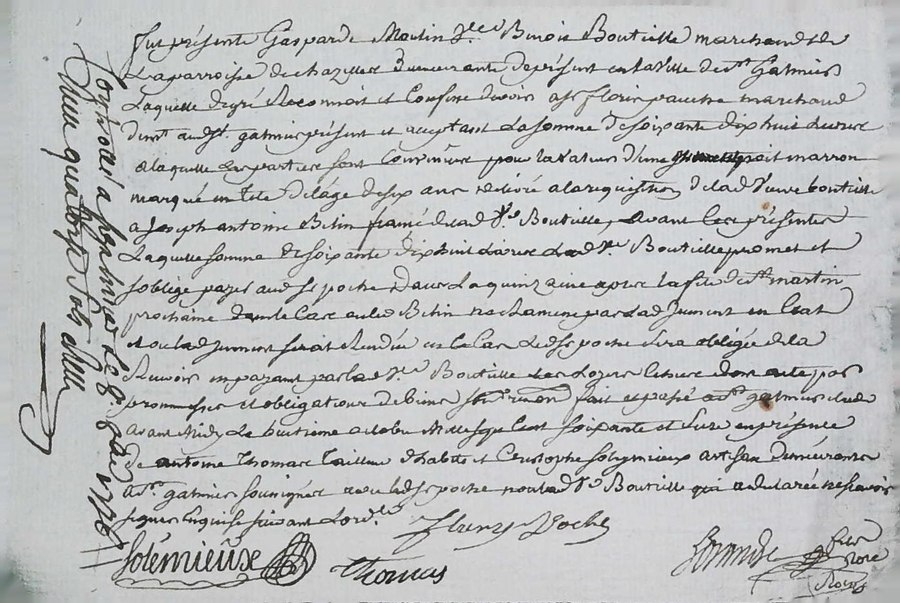 fut présente Gasparde Moulin Vve Benoit Boutielle marchand de
La parroisse de chazelles demeurante de présent en la ville de St Galmier
Laquelle de gré Reconnoit et Confesse devoir a Sr marchand
demt aud St galmier présent et acceptant La somme de soixante dix huit Livres
a laquelle Les parties sont Convenues pour la valeur d'une poil marron
marqué en tete de lage de six ans délivré a la requisition de lad Veuve boutielle
a Joseph antoine Belin de lad Ve Boutielle, avant Ces présentes
Laquelle somme de soixante dix huit Livres Lad Ve Boutielle promet et
soblige payer aud Sr poche dans La quinzaine apres la fete de St martin
prochaine dans le Cas ou led Belin ne Ramene pas Lad Jument en Etat
et ou lad Jument seroit Rendüe en le Cas Led Sr poche sera obligé de la
Recevoir en payant par lad Ve Boutielle Les Loyers
promesses et obligations de biens fait et passé a St galmier
avant midy Le huitieme octobre mille sept Cent soixante et seize en présence
de antoine Thomas Tailleur d'habits et Christophe Solemieux artisan demeurants
a St galmier soussignés avec led Sr poche non lad Ve Boutielle qui a declaré ne scavoir
signer Enquise suivant Lord.
fleury Poche
Solémieux
Thomas
Conterolé a St galmier Le 8 8bre 1776
Reçu quatorze sols